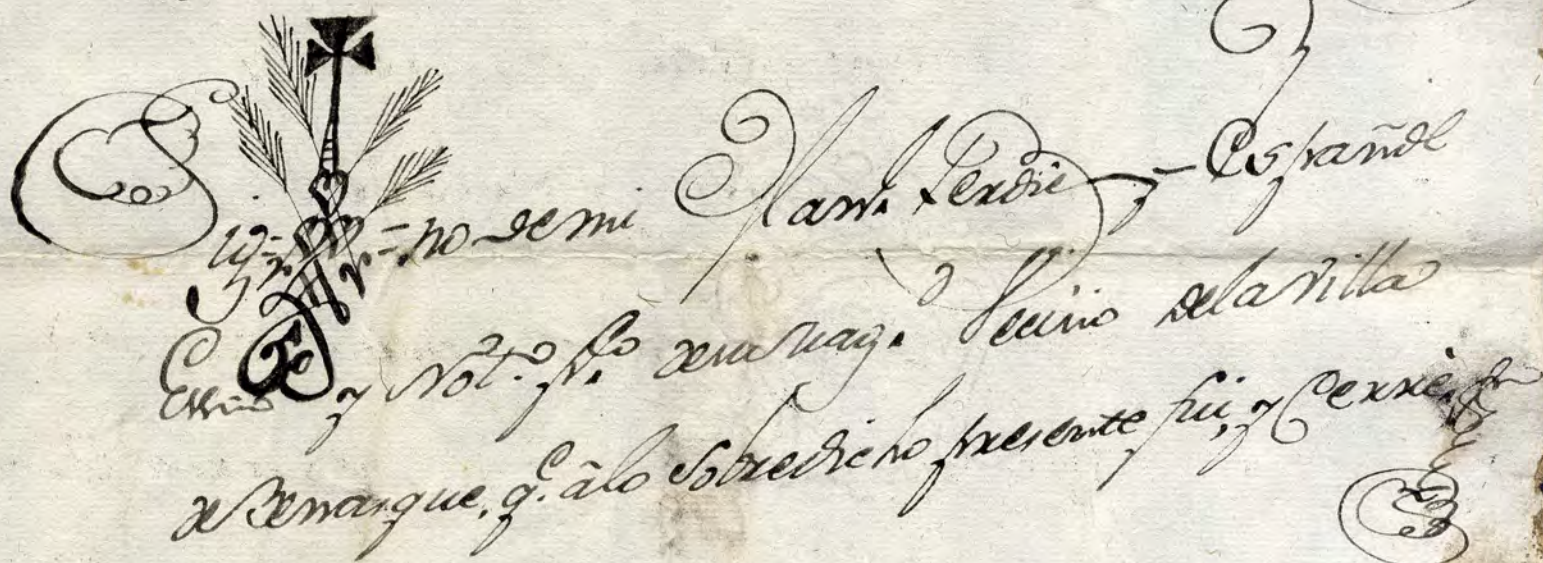 Sig=no de mi Man.l Ferdie y Español
Essno y Not.o p.co de su Mag.d Vecino de la Villa
de Benasque, q.e â lo Sobredicho presente fui, y Cerrè